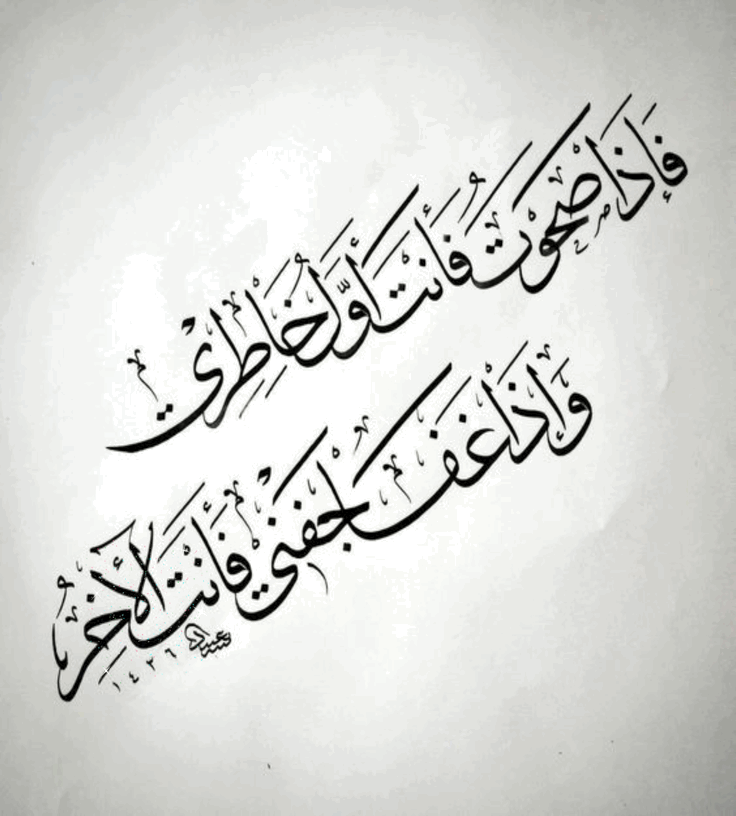 فَإِذَا صَحَوْتُ فَأَنْتَ أَوَّلُ خَاطِرِي
وَإِذَا غَفَا جَفْنِي فَأَنْتَ الْآخِرُ
عبيد
١٤٣٦